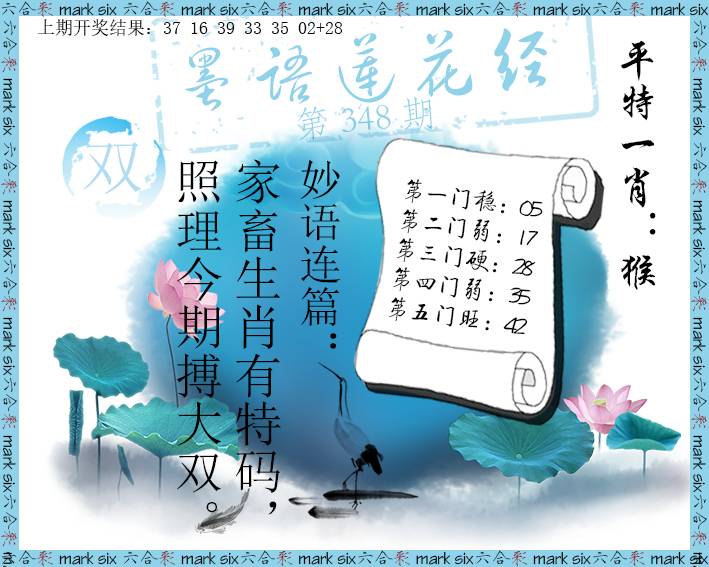 上期开奖结果：37 16 39 33 35 02+28
墨语莲花经
第 348 期
双
平特一肖：猴
第一门稳：05
第二门弱：17
第三门硬：28
第四门弱：35
第五门旺：42
妙语连篇：
家畜生肖有特码，
照理今期搏大双。
mark six 六合彩 mark six 六合彩 mark six 六合彩 mark six 六合彩 mark six 六合彩